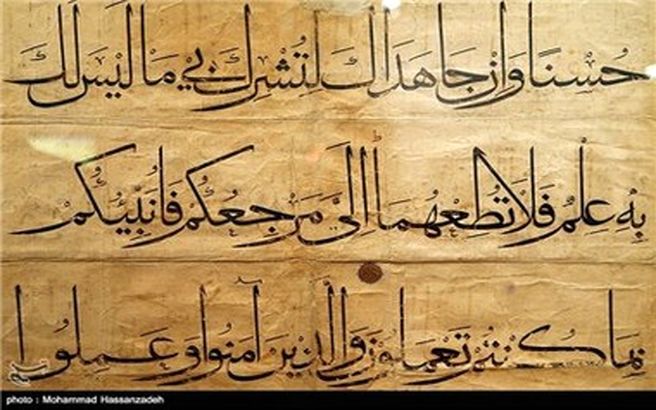 حُسْنًا وَإِنْ جَاهَدَاكَ لِتُشْرِكَ بِي مَا لَيْسَ لَكَ
بِهِ عِلْمٌ فَلَا تُطِعْهُمَا إِلَيَّ مَرْجِعُكُمْ فَأُنَبِّئُكُمْ
بِمَا كُنْتُمْ تَعْمَلُونَ وَالَّذِينَ آمَنُوا وَعَمِلُوا
photo : Mohammad Hassanzadeh